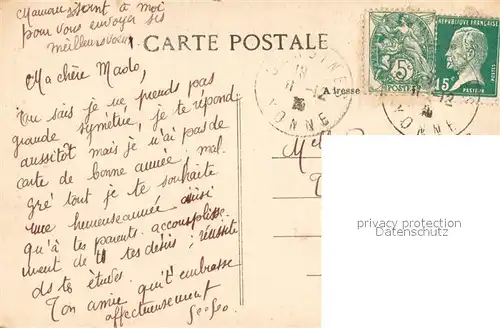 Maman se joint à moi
pour vous envoyer ses
meilleurs voeux
CARTE POSTALE
RÉPUBLIQUE FRANÇAISE
POSTES
5c
15c
PASTEUR
11-12
YONNE
11-12
YONNE
Adresse
Ma chère Mado,
Tu sais je ne prends pas
grande symétrie, je te répond
aussitôt mais je n'ai pas de
carte de bonne année, mal
gré tout je te souhaite
une heureuse année ainsi
qu'à tes parents. accomplisse
ment de tes désirs : réussite
ds tes études.
Ton amie qui t'embrasse
affectueusement
privacy protection
Datenschutz